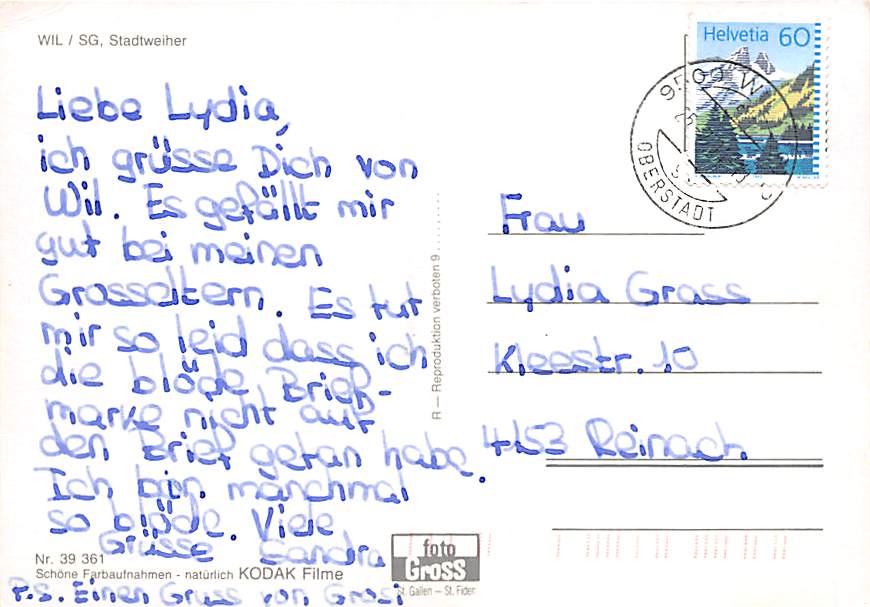 WIL / SG, Stadtweiher
Liebe Lydia,
ich grüsse Dich von
Wil. Es gefällt mir
gut bei meinen
Grosseltern. Es tut
mir so leid dass ich
die blöde Brief-
marke nicht auf
den Brief getan habe.
Ich bin manchmal
so blöde. Viele
Grüsse Sandra
P.S. Einen Gruss von Grosi
Nr. 39 361
Schöne Farbaufnahmen - natürlich KODAK Filme
R — Reproduktion verboten 9
foto
Gross
St. Gallen — St. Fiden
Helvetia 60
9500 W
OBERSTADT
Frau
Lydia Grass
Kleestr. 10
4153 Reinach